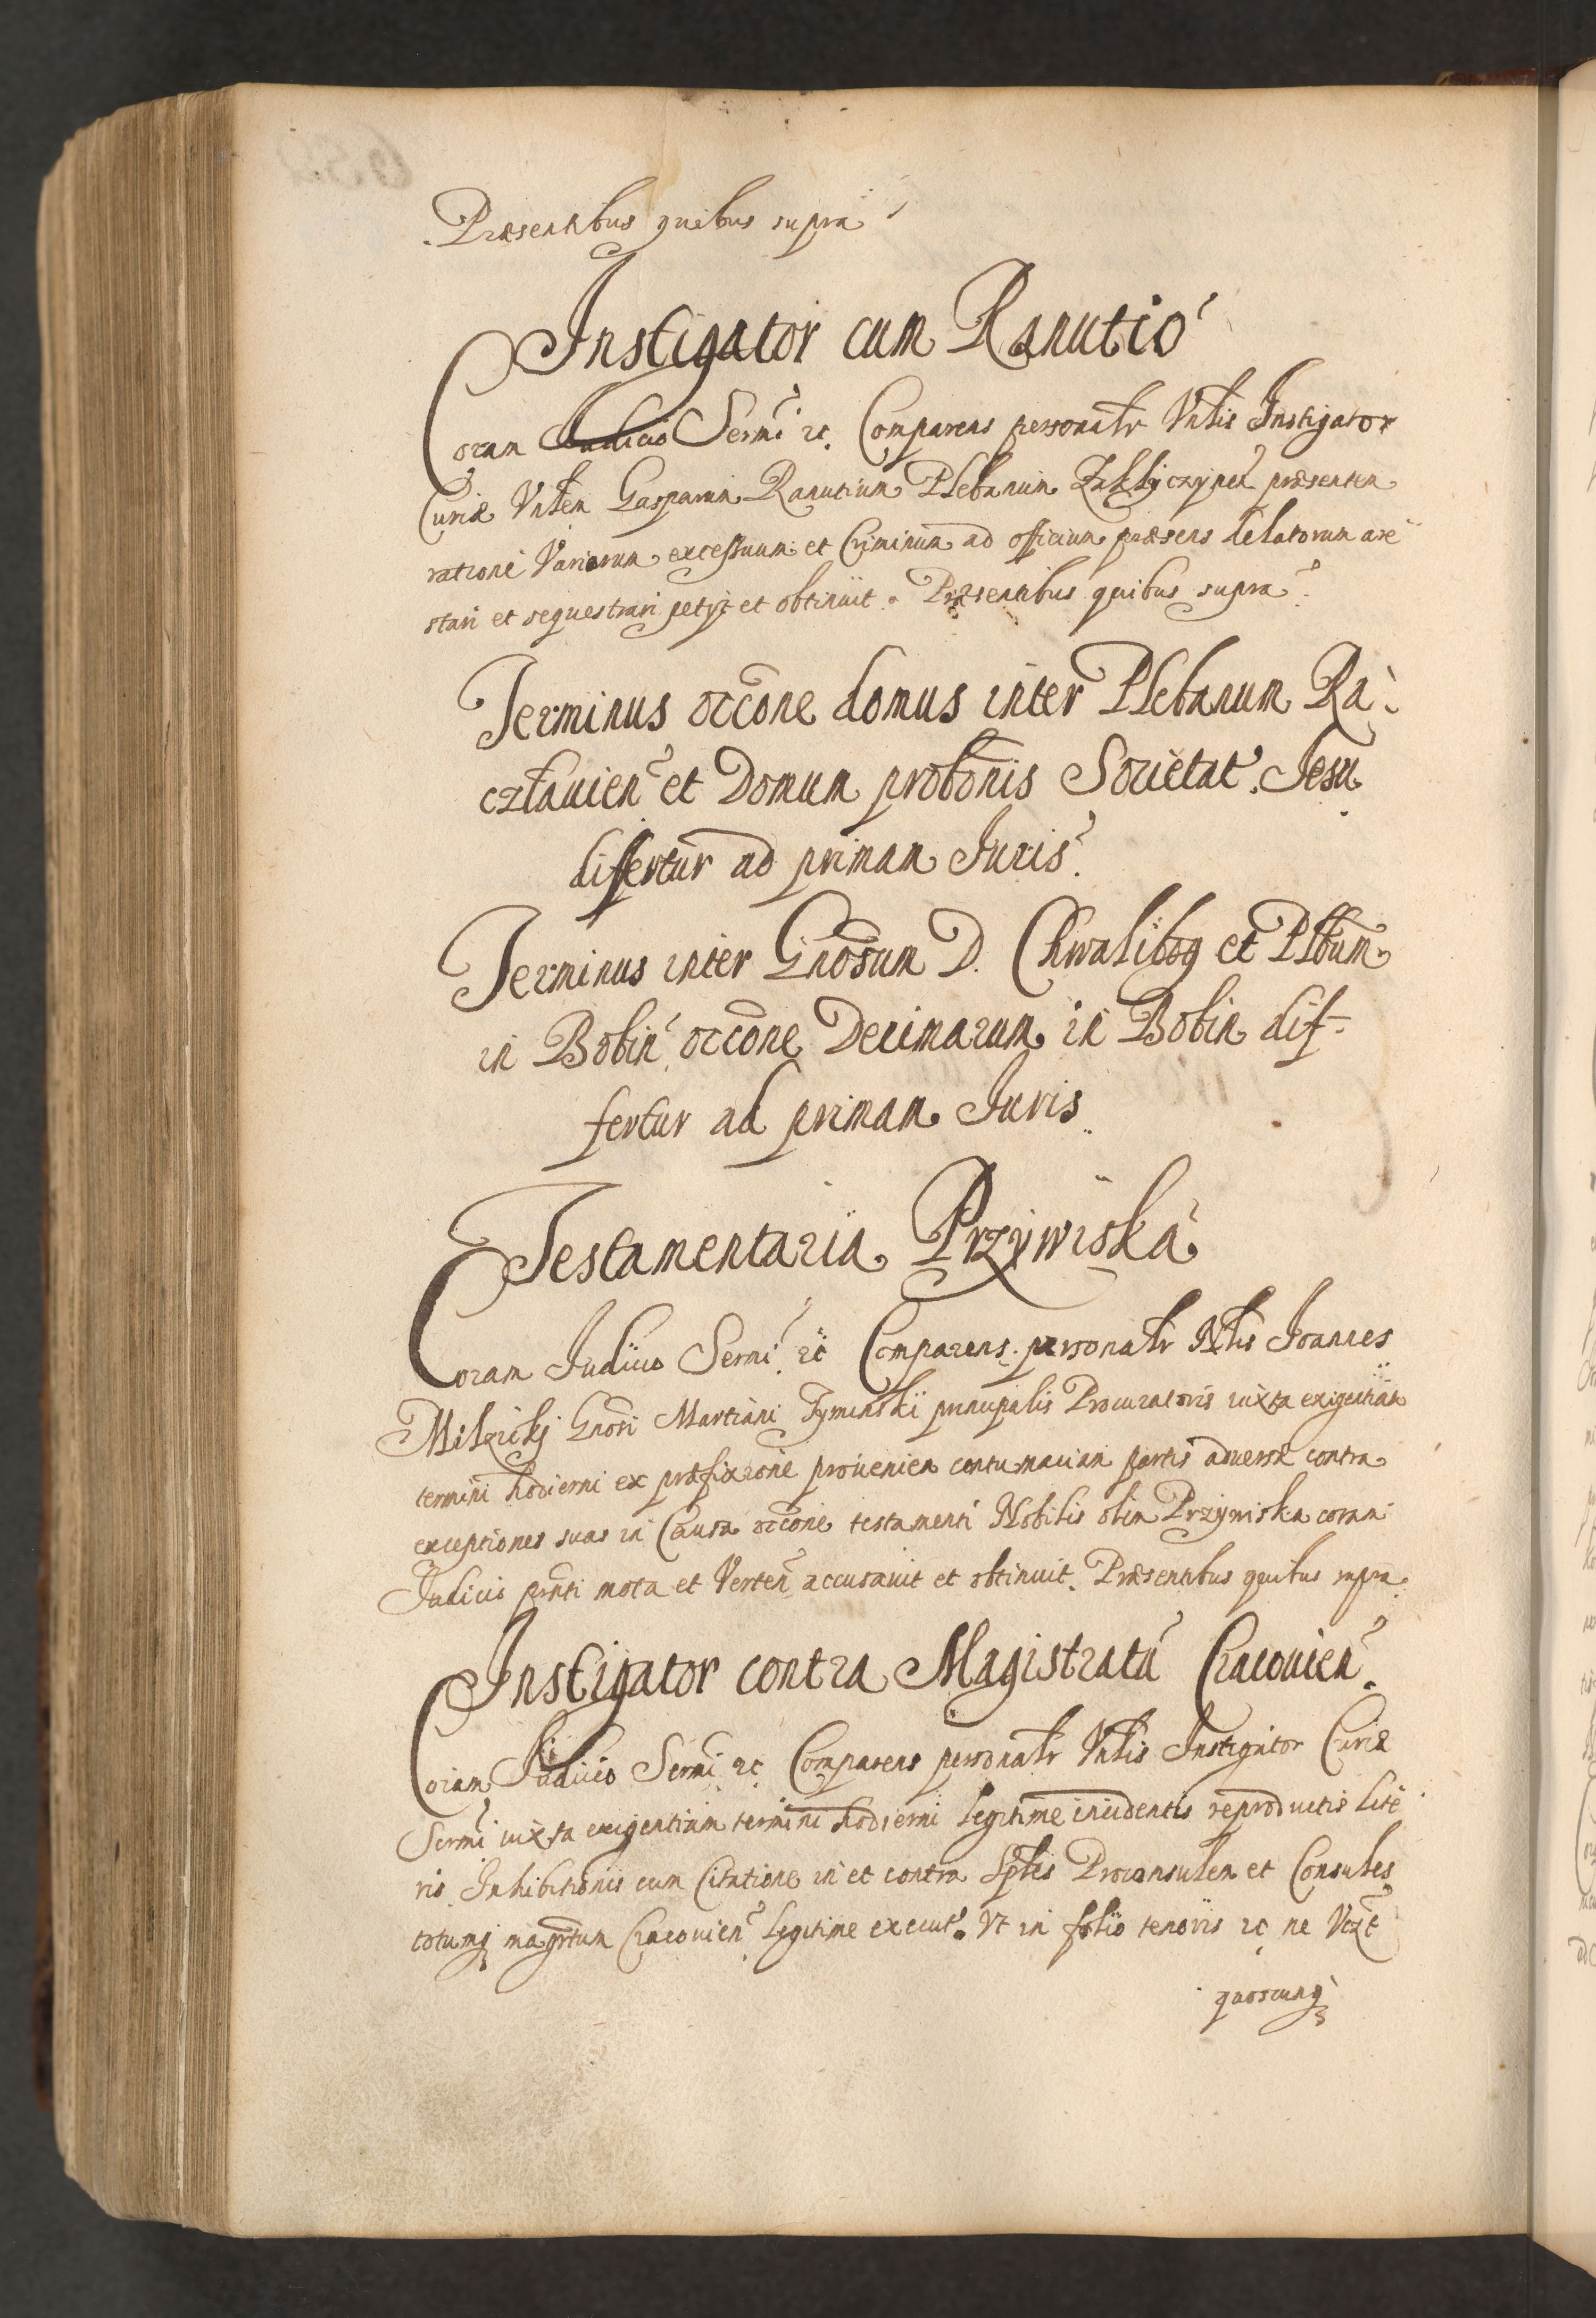 Præsentibus quibus supra
Instigator cum Ranutio
Coram Judicio Sermi etc. Comparens personalr Vnblis Instigator
Curiæ Vnblem Gasparum Ranutium Plebanum Zakliczynen præsentem
ratione Variorum excessuum et Criminum ad officium præsens delatorum are
stari et sequestrari petijt et obtinuit. Præsentibus quibus supra.
Terminus occone domus inter Plebanum Ra-
cztauien et Domum probonis Societat. Jesu
differtur ad primam Juris.
Terminus inter Gnosum D. Chwalibog et Plbum
in Bobin occone Decimarum in Bobin dif-
fertur ad primam Juris
Testamentaria Przywiska
Coram Judicio Sermi etc Comparens personalr Nblis Joannes
Gnosi Martiani Tyminskii principalis Procuratoris iuxta exigentiam
termini hodierni ex præfixione prouenien contumaciam partis aduersæ contra
exceptiones suas in Causa occone testamenti Nobilis olim Przywiska coram
Judicio pnti mota et Verten accusauit et obtinuit. Præsentibus quibus supra
Instigator contra Magistratu Cracouien.
Coram Judicio Sermi etc Comparens personalr Vnblis Instigator Curiæ
Sermi iuxta exigentiam termini hodierni legitime incidentis reproductis lite
ris Inhibitionis cum Citatione in et contra Sptles Proconsulem et Consules
totumq magrtum Cracouien legitime execut. Vt in folio tenoris etc ne
quoscunq